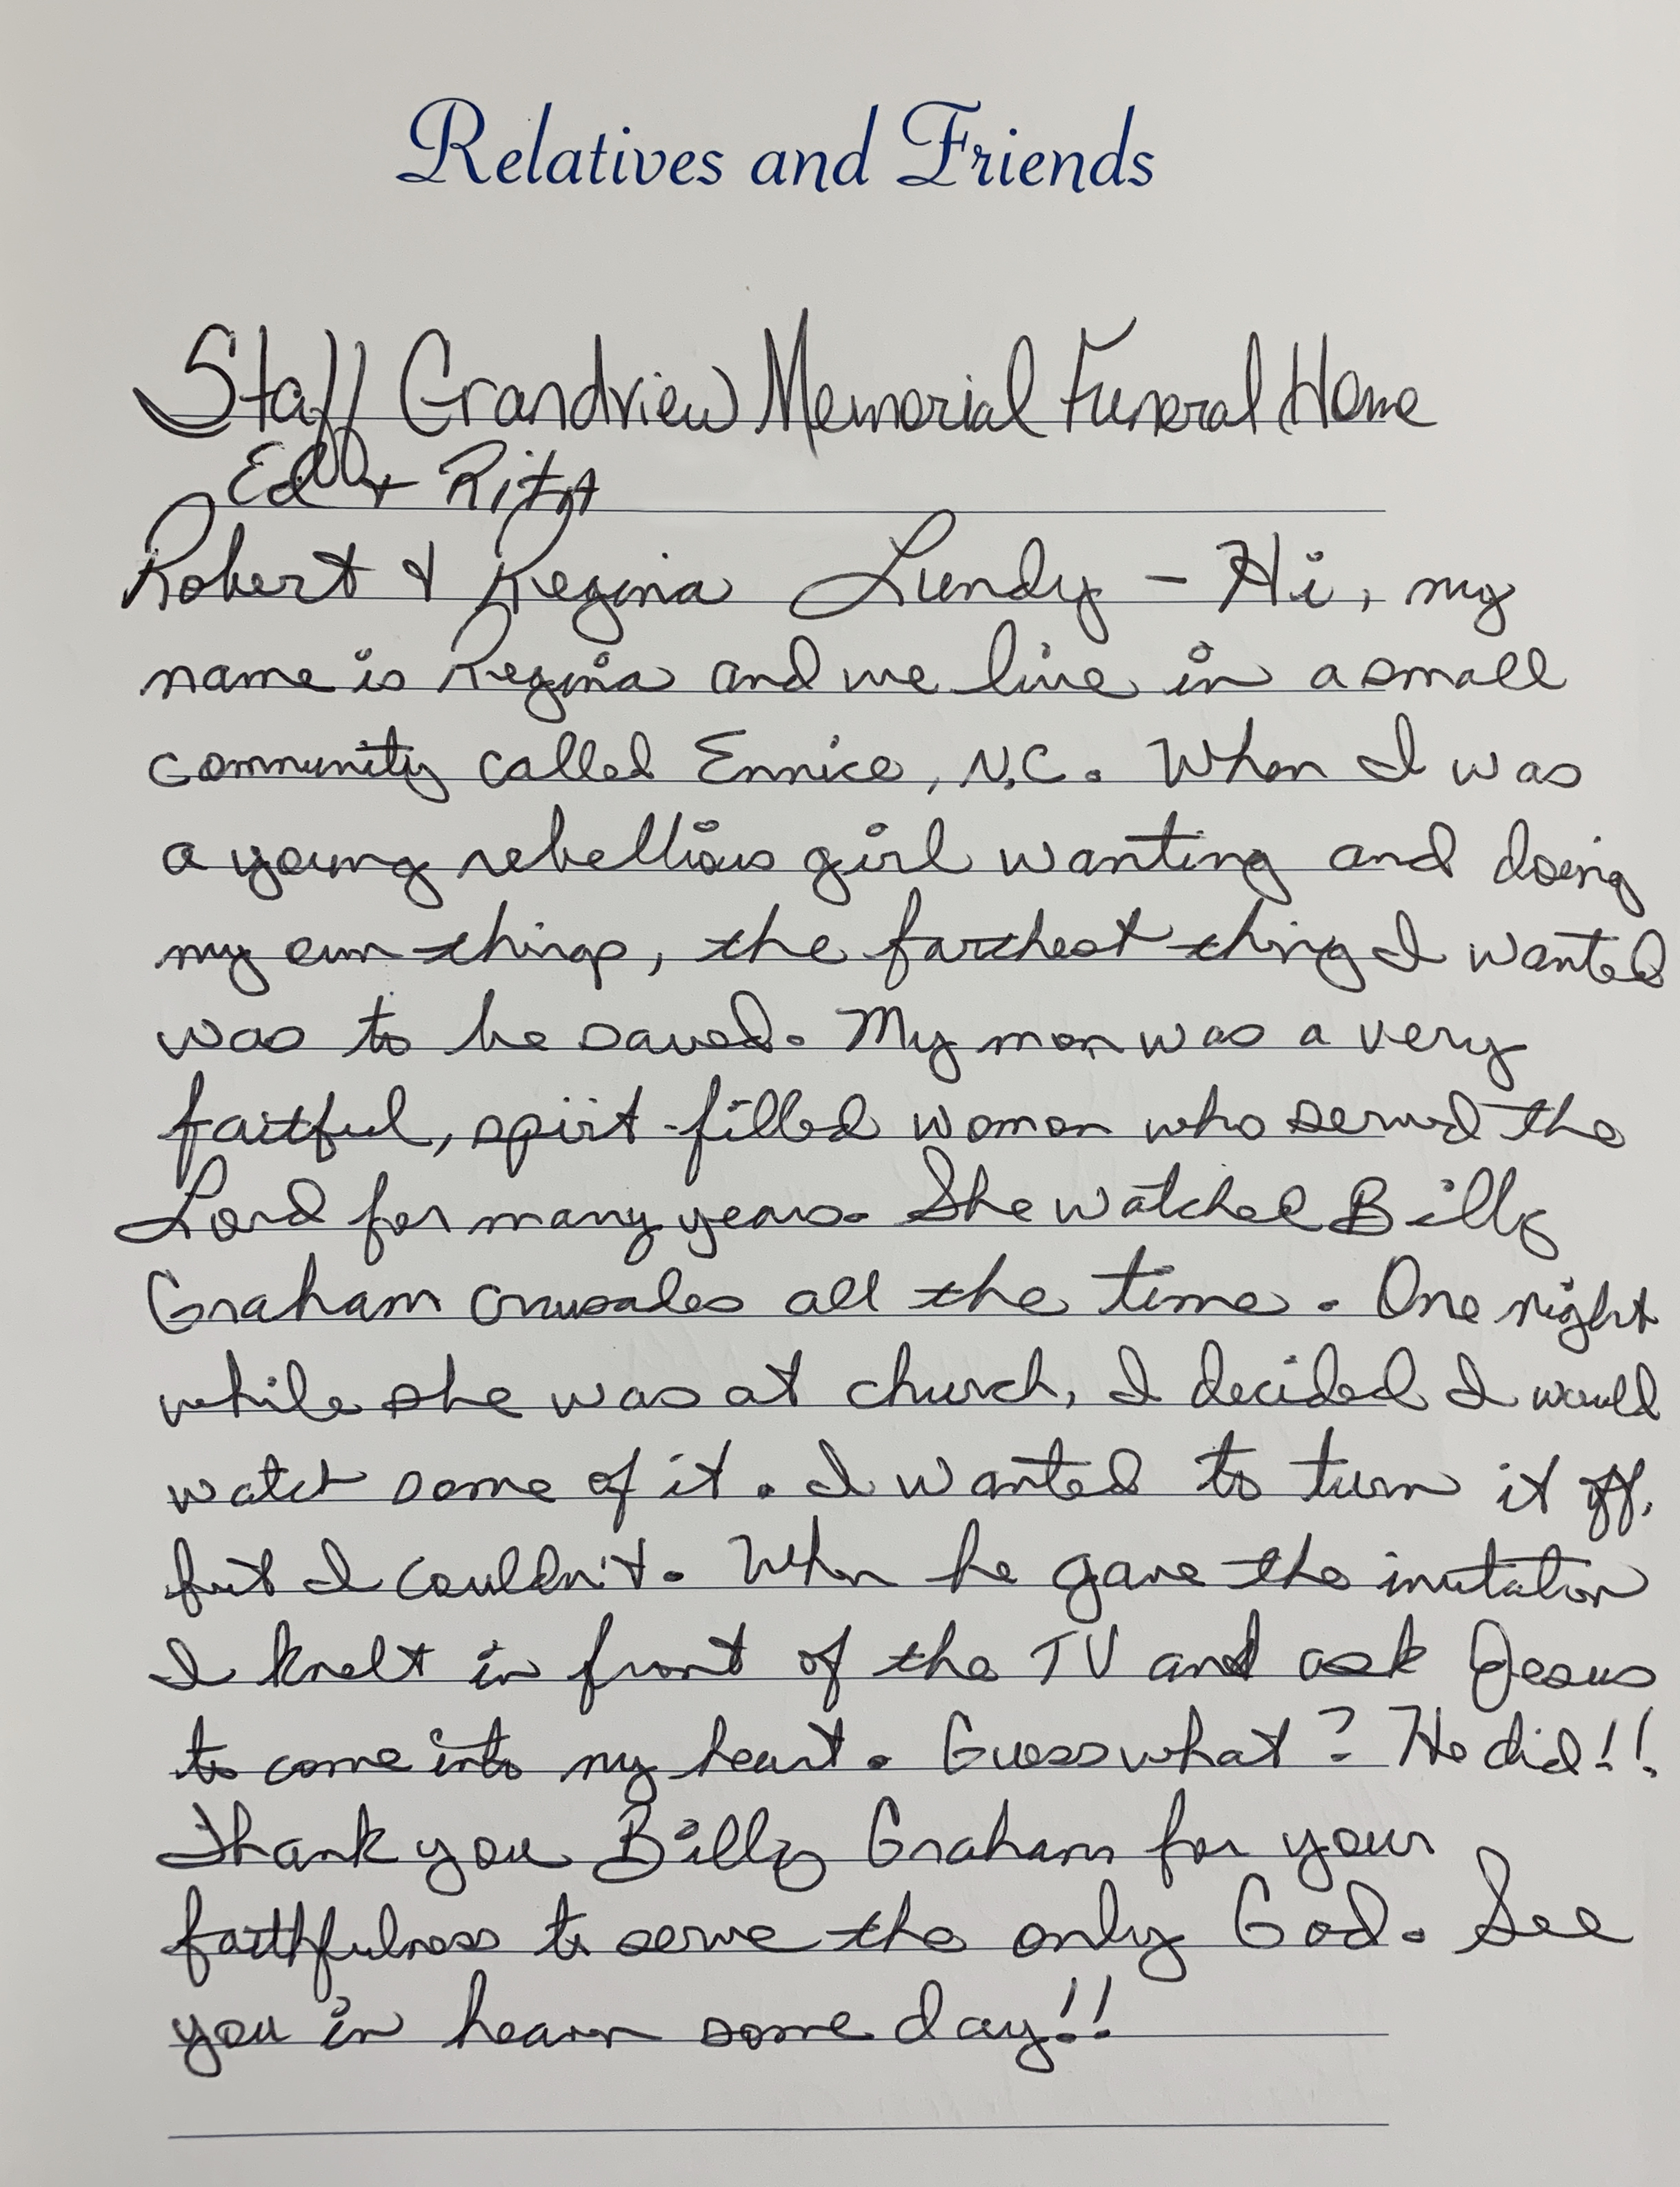 Relatives and Friends
Staff Grandview Memorial Funeral Home
Ed + Rita
Robert & Regina Lundy - Hi, my
name is Regina and we live in a small
community called Ennice, N.C. When I was
a young rebellious girl wanting and doing
my own things, the farthest thing I wanted
was to be saved. My mom was a very
faitful, spirt-filled woman who served the
Lord for many years. She watched Billy
Graham crusades all the time. One night
while she was at church, I decided I would
watch some of it. I wanted to turn it off,
but I couldn't. When he gave the invitation
I knelt in front of the TV and ask Jesus
to come into my heart. Guess what? He did!!
Thank you Billy Graham for your
faithfulness to serve the only God. See
you in heaven some day!!